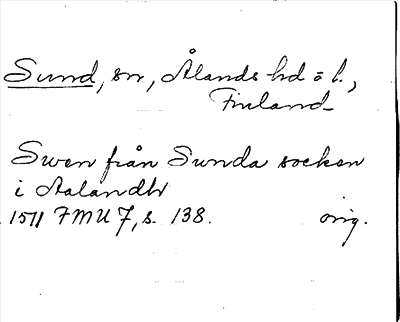 Sund, sn, Ålands hd o l.,
Finland
Swen från Sunda socken
i Aalandh
1511 FMU 7, s. 138. orig.